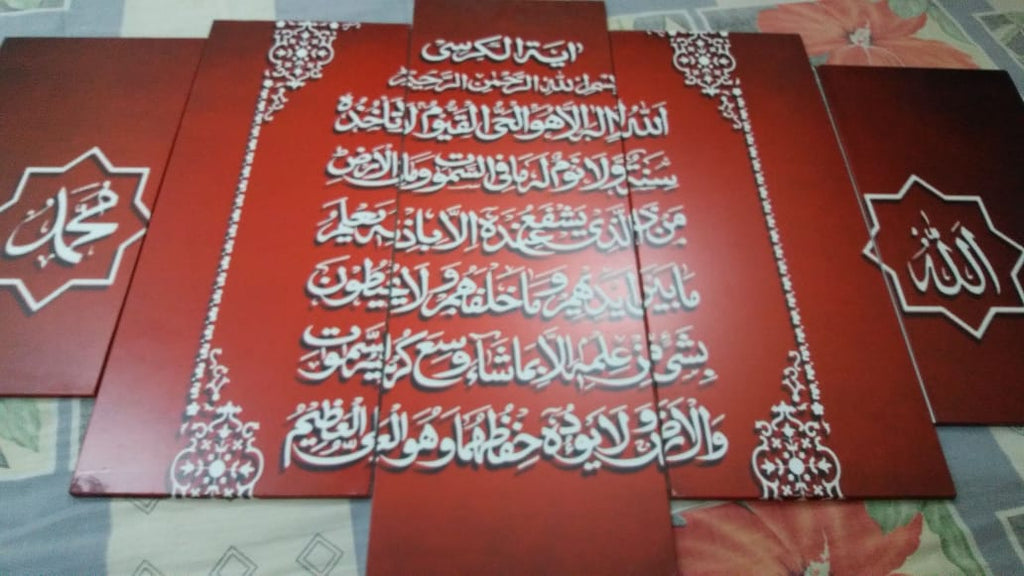 اية الكرسى
بسم الله الرحمن الرحيم
الله لا إله إلا هو الحي القيوم لا تأخذه
سنة ولا نوم له ما في السموت وما في الأرض
من ذا الذي يشفع عنده إلا بإذنه يعلم
ما بين أيديهم وما خلفهم ولا يحيطون
بشئ من علمه إلا بما شاء وسع كرسيه السموت
والأرض ولا يؤده حفظهما وهو العلي العظيم
الله
محمد